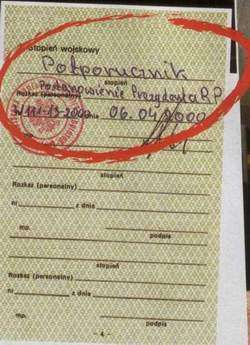 Stopień wojskowy
Podporucznik
stopień
Rozkaz (personalny)
Postanowienie Prezydenta RP
z dnia 06.04.2000
podpis
stopień
Rozkaz (personalny)
nr z dnia
mp. podpis
stopień
Rozkaz (personalny)
nr z dnia
mp. podpis
- 4 -